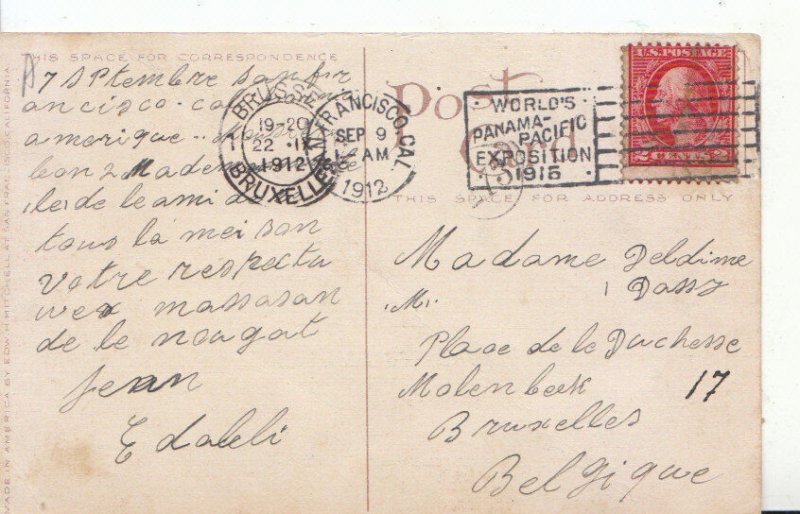 THIS SPACE FOR CORRESPONDENCE
7 septembre sanfr
ancisco - ca
amerique
bon 2 Madem
iles de le ami d
tous la meison
votre respectu
wex massasan
de le nougat
Jean
Edaleli
MADE IN AMERICA BY EDW H MITCHELL AT SAN FRANCISCO CALIFORNIA
BRUSSEL
19-20
22 IX
1912
BRUXELLES
SAN FRANCISCO, CAL.
SEP 9
AM
1912
WORLD'S
PANAMA-
PACIFIC
EXPOSITION
1915
U.S. POSTAGE
2 CENTS 2
Post
Card
THIS SPACE FOR ADDRESS ONLY
Madame Deldime
M. Dassy
Place de le Duchesse
Molenbeek 17
Bruxelles
Belgique